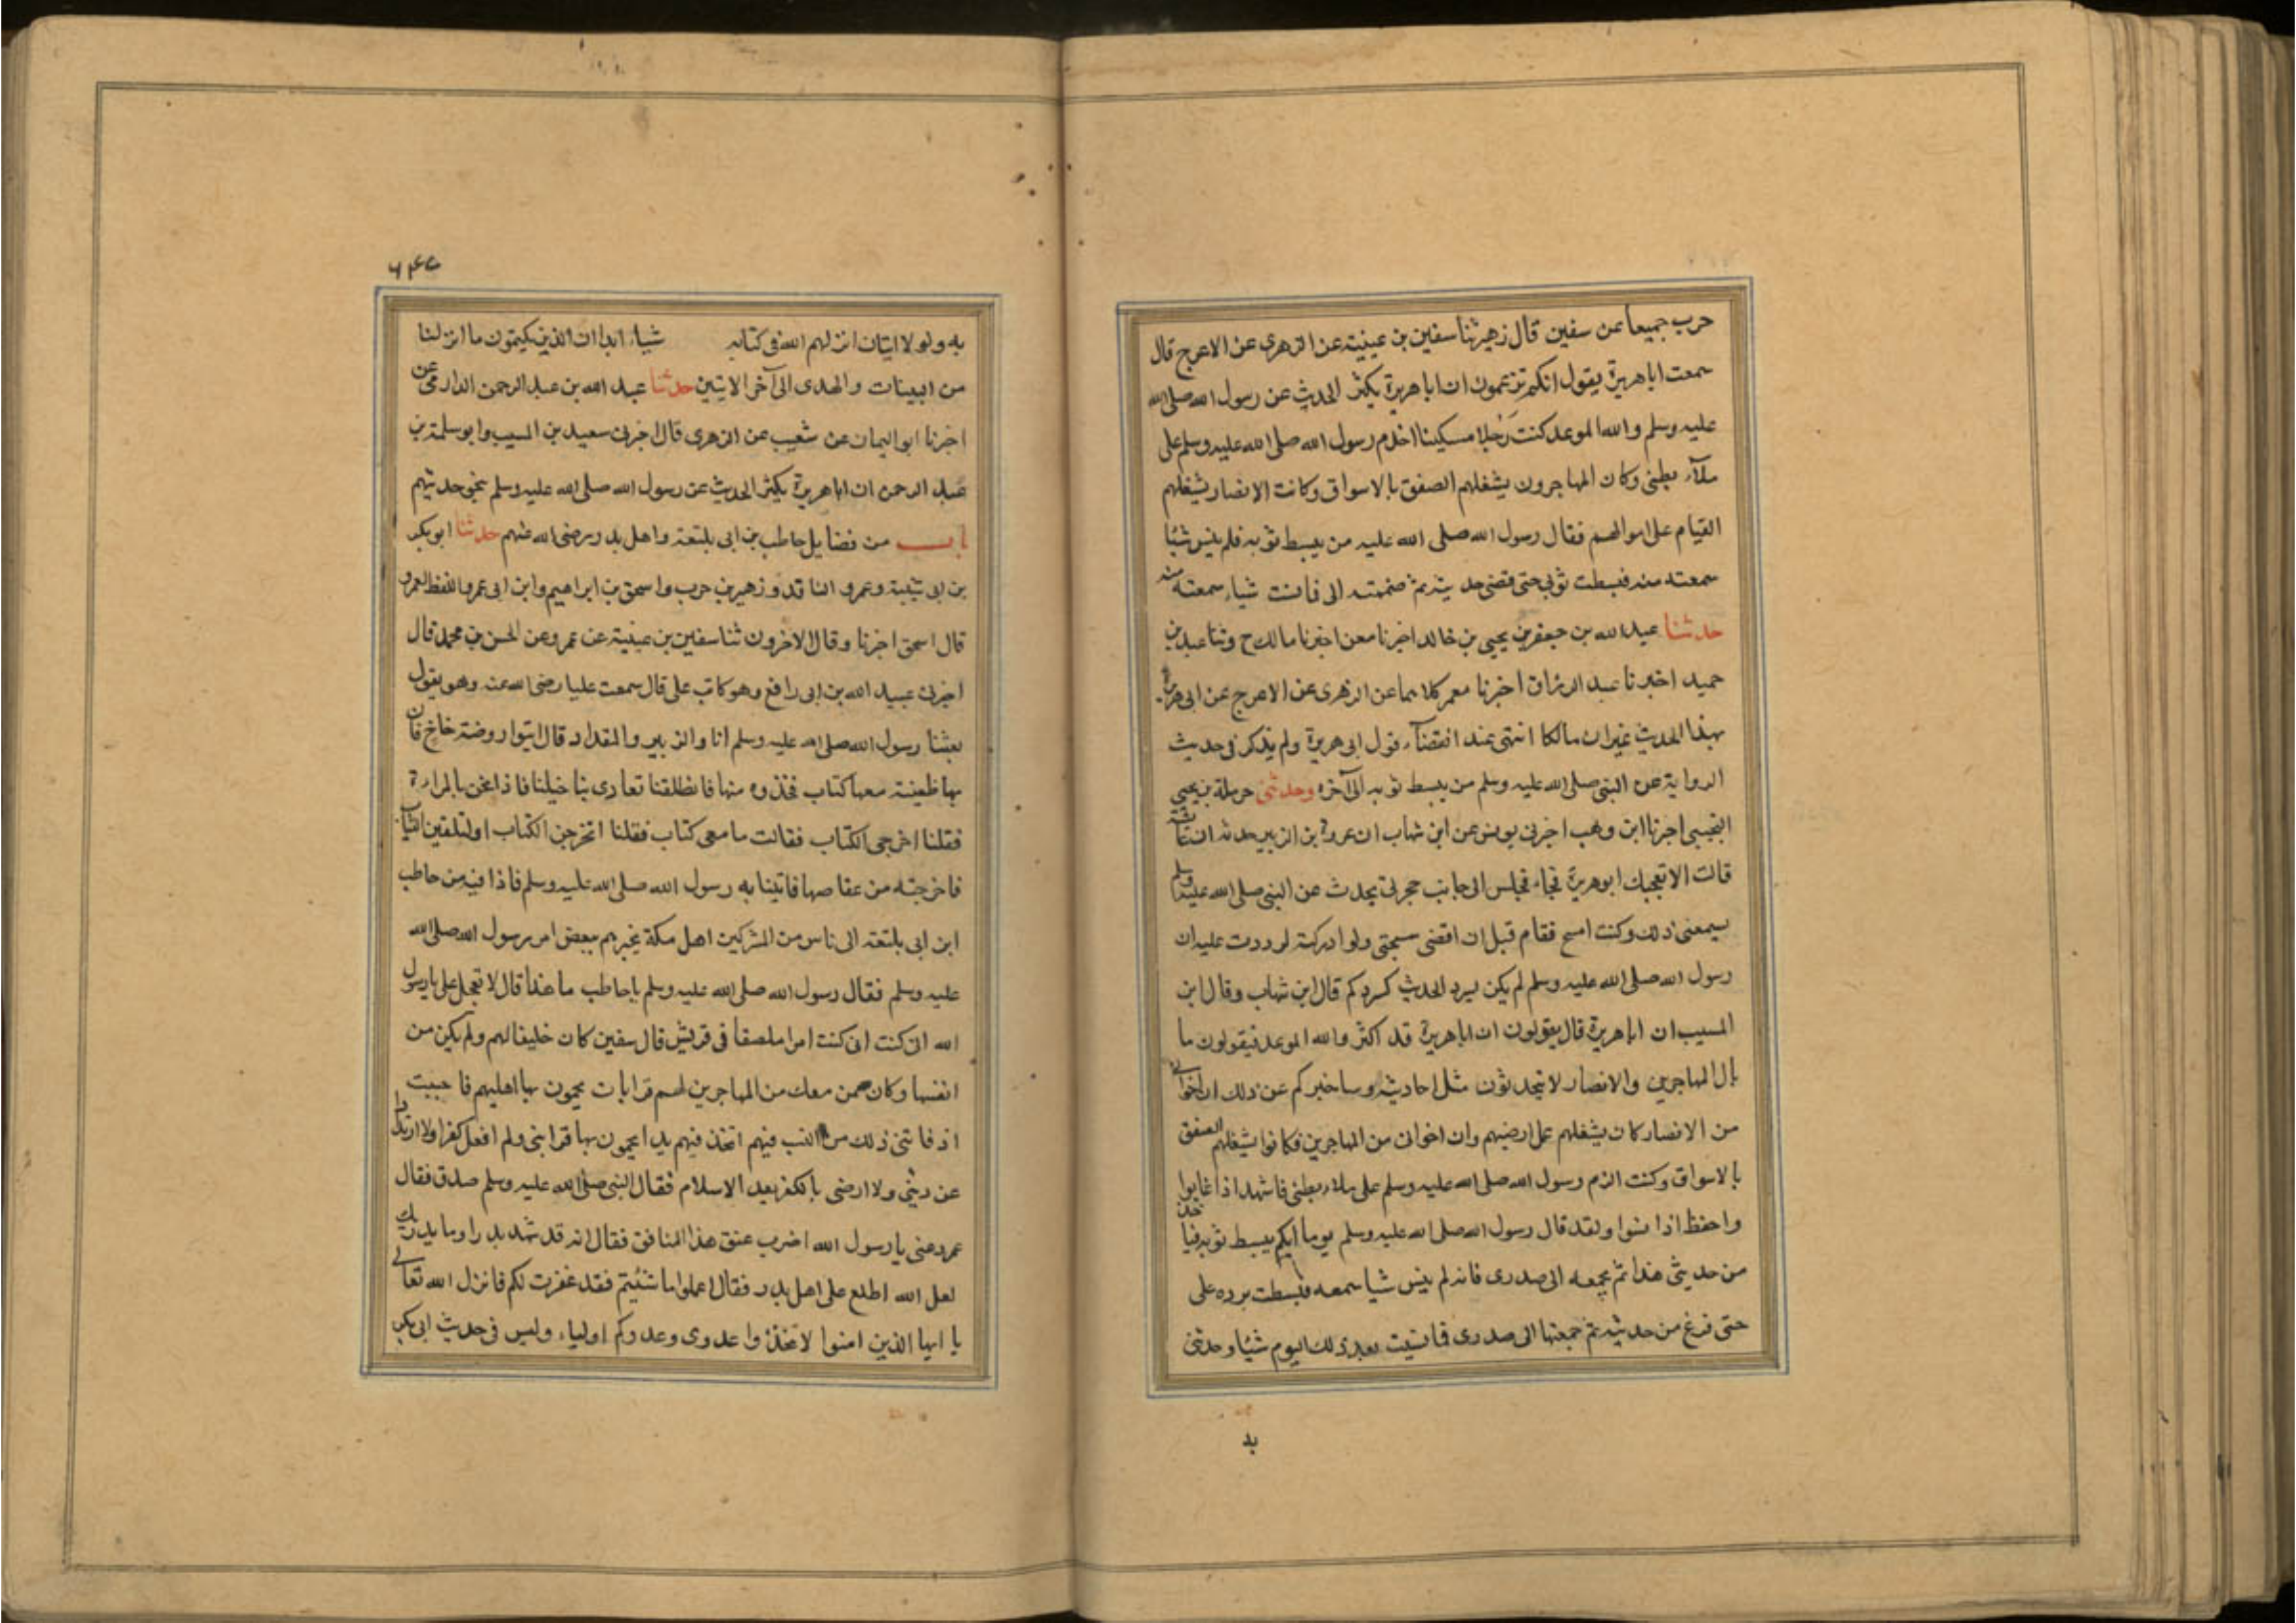 حرب جميعا عن سفين قال زهير ثنا سفين بن عيينة عن الزهرى عن الاعرج قال
سمعت اباهريرة يقول انكم تزعمون ان اباهريرة يكثر الحديث عن رسول الله صلى الله
عليه وسلم والله الموعد كنت رَجلا مسكينا اخدم رسول الله صلى الله عليه وسلم على
ملآء بطنى وكان المهاجرون يشغلهم الصفق بالاسواق وكانت الانصار يشغلهم
القيام على اموالهم فقال رسول الله صلى الله عليه من يبسط ثوبه فلم ينس شيًا
سمعته منه فبسطت ثوبى حتى قضى حديثه ثم ضممته الى فانست شياء سمعته منه
حدثنا عبد الله بن جعفر بن يحيى بن خالد اخبرنا معن اخبرنا مالك ح وثنا عبد بن
حميد اخبرنا عبد الرزاق اخبرنا معمر كلاهما عن الزهرى عن الاعرج عن ابى هريرة
بهذا الحديث غير ان مالكا انتهى عند انقضآء قول ابى هريرة ولم يذكر فى حديث
الرواية عن النبى صلى الله عليه وسلم من يبسط ثوبه الى آخره وحدثنى حرملة بن يحيى
التجيبى اخبرنا ابن وهب اخبرنى يونس عن ابن شهاب ان عروة بن الزبير حدثه ان عائشة
قالت الا يعجبك ابوهريرة فجاء فجلس الى جانب حجرتى يحدث عن النبى صلى الله عليه وسلم
يسمعنى ذلك وكنت اسبح فقام قبل ان اقضى سبحتى ولو ادركته لرددت عليه ان
رسول الله صلى الله عليه وسلم لم يكن يسرد الحديث كسردكم قال ابن شهاب وقال ابن
المسيب ان اباهريرة قال يقولون ان اباهريرة قد اكثر والله الموعد فيقولون ما
بال المهاجرين والانصار لا يتحدثون مثل احاديثه وساخبركم عن ذلك ان اخوانى
من الانصار كان يشغلهم عمل ارضيهم وان اخوان من المهاجرين فكانوا يشغلهم الصفق
بالاسواق وكنت الزم رسول الله صلى الله عليه وسلم على ملاء بطنى فاشهد اذا غابوا
واحفظ اذا نسوا ولقد قال رسول الله صلى الله عليه وسلم يوما ايكم يبسط ثوبه فياخذ
من حديثى هذا ثم يجمعه الى صدرى فانه لم ينس شيا سمعه فبسطت برده على
حتى فرغ من حديثه ثم جمعتها الى صدرى فانسيت بعد ذلك اليوم شيًا وحدثنى
بد
٦٤٧
به ولو لا ايتان انزلهم الله فى كتابه شياء ابدا ان الذين يكتمون ما انزلنا
من البينات والهدى الى آخر الايتين حدثنا عبد الله بن عبد الرحمن الدارمى عن
اخبرنا ابو اليمان عن شعيب عن الزهرى قال اخبرنى سعيد بن المسيب وابو سلمة بن
عبد الرحمن ان اباهريرة يكثر الحديث عن رسول الله صلى الله عليه وسلم بنحو حديثهم
باب من فضايل حاطب بن ابى بلتعة واهل بدر رضى الله عنهم حدثنا ابوبكر
بن ابى شيبة وعمرو الناقد وزهير بن حرب واسحق بن ابراهيم وابن ابى عمر واللفظ لعمرو
قال اسحق اخبرنا وقال الاخرون ثنا سفين بن عيينة عن عمرو عن الحسن بن محمد قال
اخبرنى عبيد الله بن ابى رافع وهو كاتب على قال سمعت عليا رضى الله عنه وهو يقول
بعثنا رسول الله صلى الله عليه وسلم انا والزبير والمقداد قال ايتوا روضة خاخ فان
بها ظعينة معها كتاب فخذوه منها فانطلقنا تعادى بنا خيلنا فاذا نحن بالمراءة
فقلنا اخرجى الكتاب فقالت ما معى كتاب فقلنا اتخرجن الكتاب اولتلقين الثياب
فاخرجته من عقاصها فاتينا به رسول الله صلى الله عليه وسلم فاذا فيه من حاطب
ابن ابى بلتعة الى ناس من المشركين اهل مكة يخبرهم ببعض امر رسول الله صلى الله
عليه وسلم فقال رسول الله صلى الله عليه وسلم ياحاطب ما هذا قال لا تعجل على يا رسول
الله ان كنت انى كنت امرا ملصقا فى قريش قال سفين كان حليفا لهم ولم يكن من
انفسها وكان ممن معك من المهاجرين لهم قرابات يحمون بها اهليهم فاحببت
اذ فاتنى ذلك من النسب فيهم اتخذ فيهم يدا يحمون بها قرابتى ولم افعل كفرا ولا ارتدادا
عن دينى ولا ارضى بالكفر بعد الاسلام فقال النبى صلى الله عليه وسلم صدق فقال
عمر دعنى يا رسول الله اضرب عنق هذا المنافق فقال انه قد شهد بدرا وما يدريك
لعل الله اطلع على اهل بدر فقال اعملوا ما شئيتم فقد غفرت لكم فانزل الله تعالى
يا ايها الذين امنوا لا تتخذوا عدوى وعدوكم اولياء وليس فى حديث ابى بكر